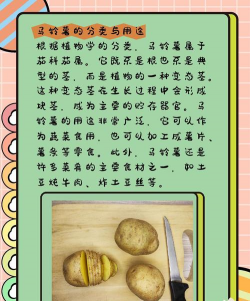 马铃薯的分类与用途
根据植物学的分类，马铃薯属于
茄科茄属。它既不是根也不是典
型的茎，而是植物的一种变态茎。
这种变态茎在生长过程中会形成
块茎，成为主要的贮存器官。马
铃薯的用途非常广泛，它可以作
为蔬菜食用，也可以加工成薯片、
薯条等零食。此外，马铃薯还是
许多菜肴的主要食材之一，如土
豆炖牛肉、炸土豆丝等。